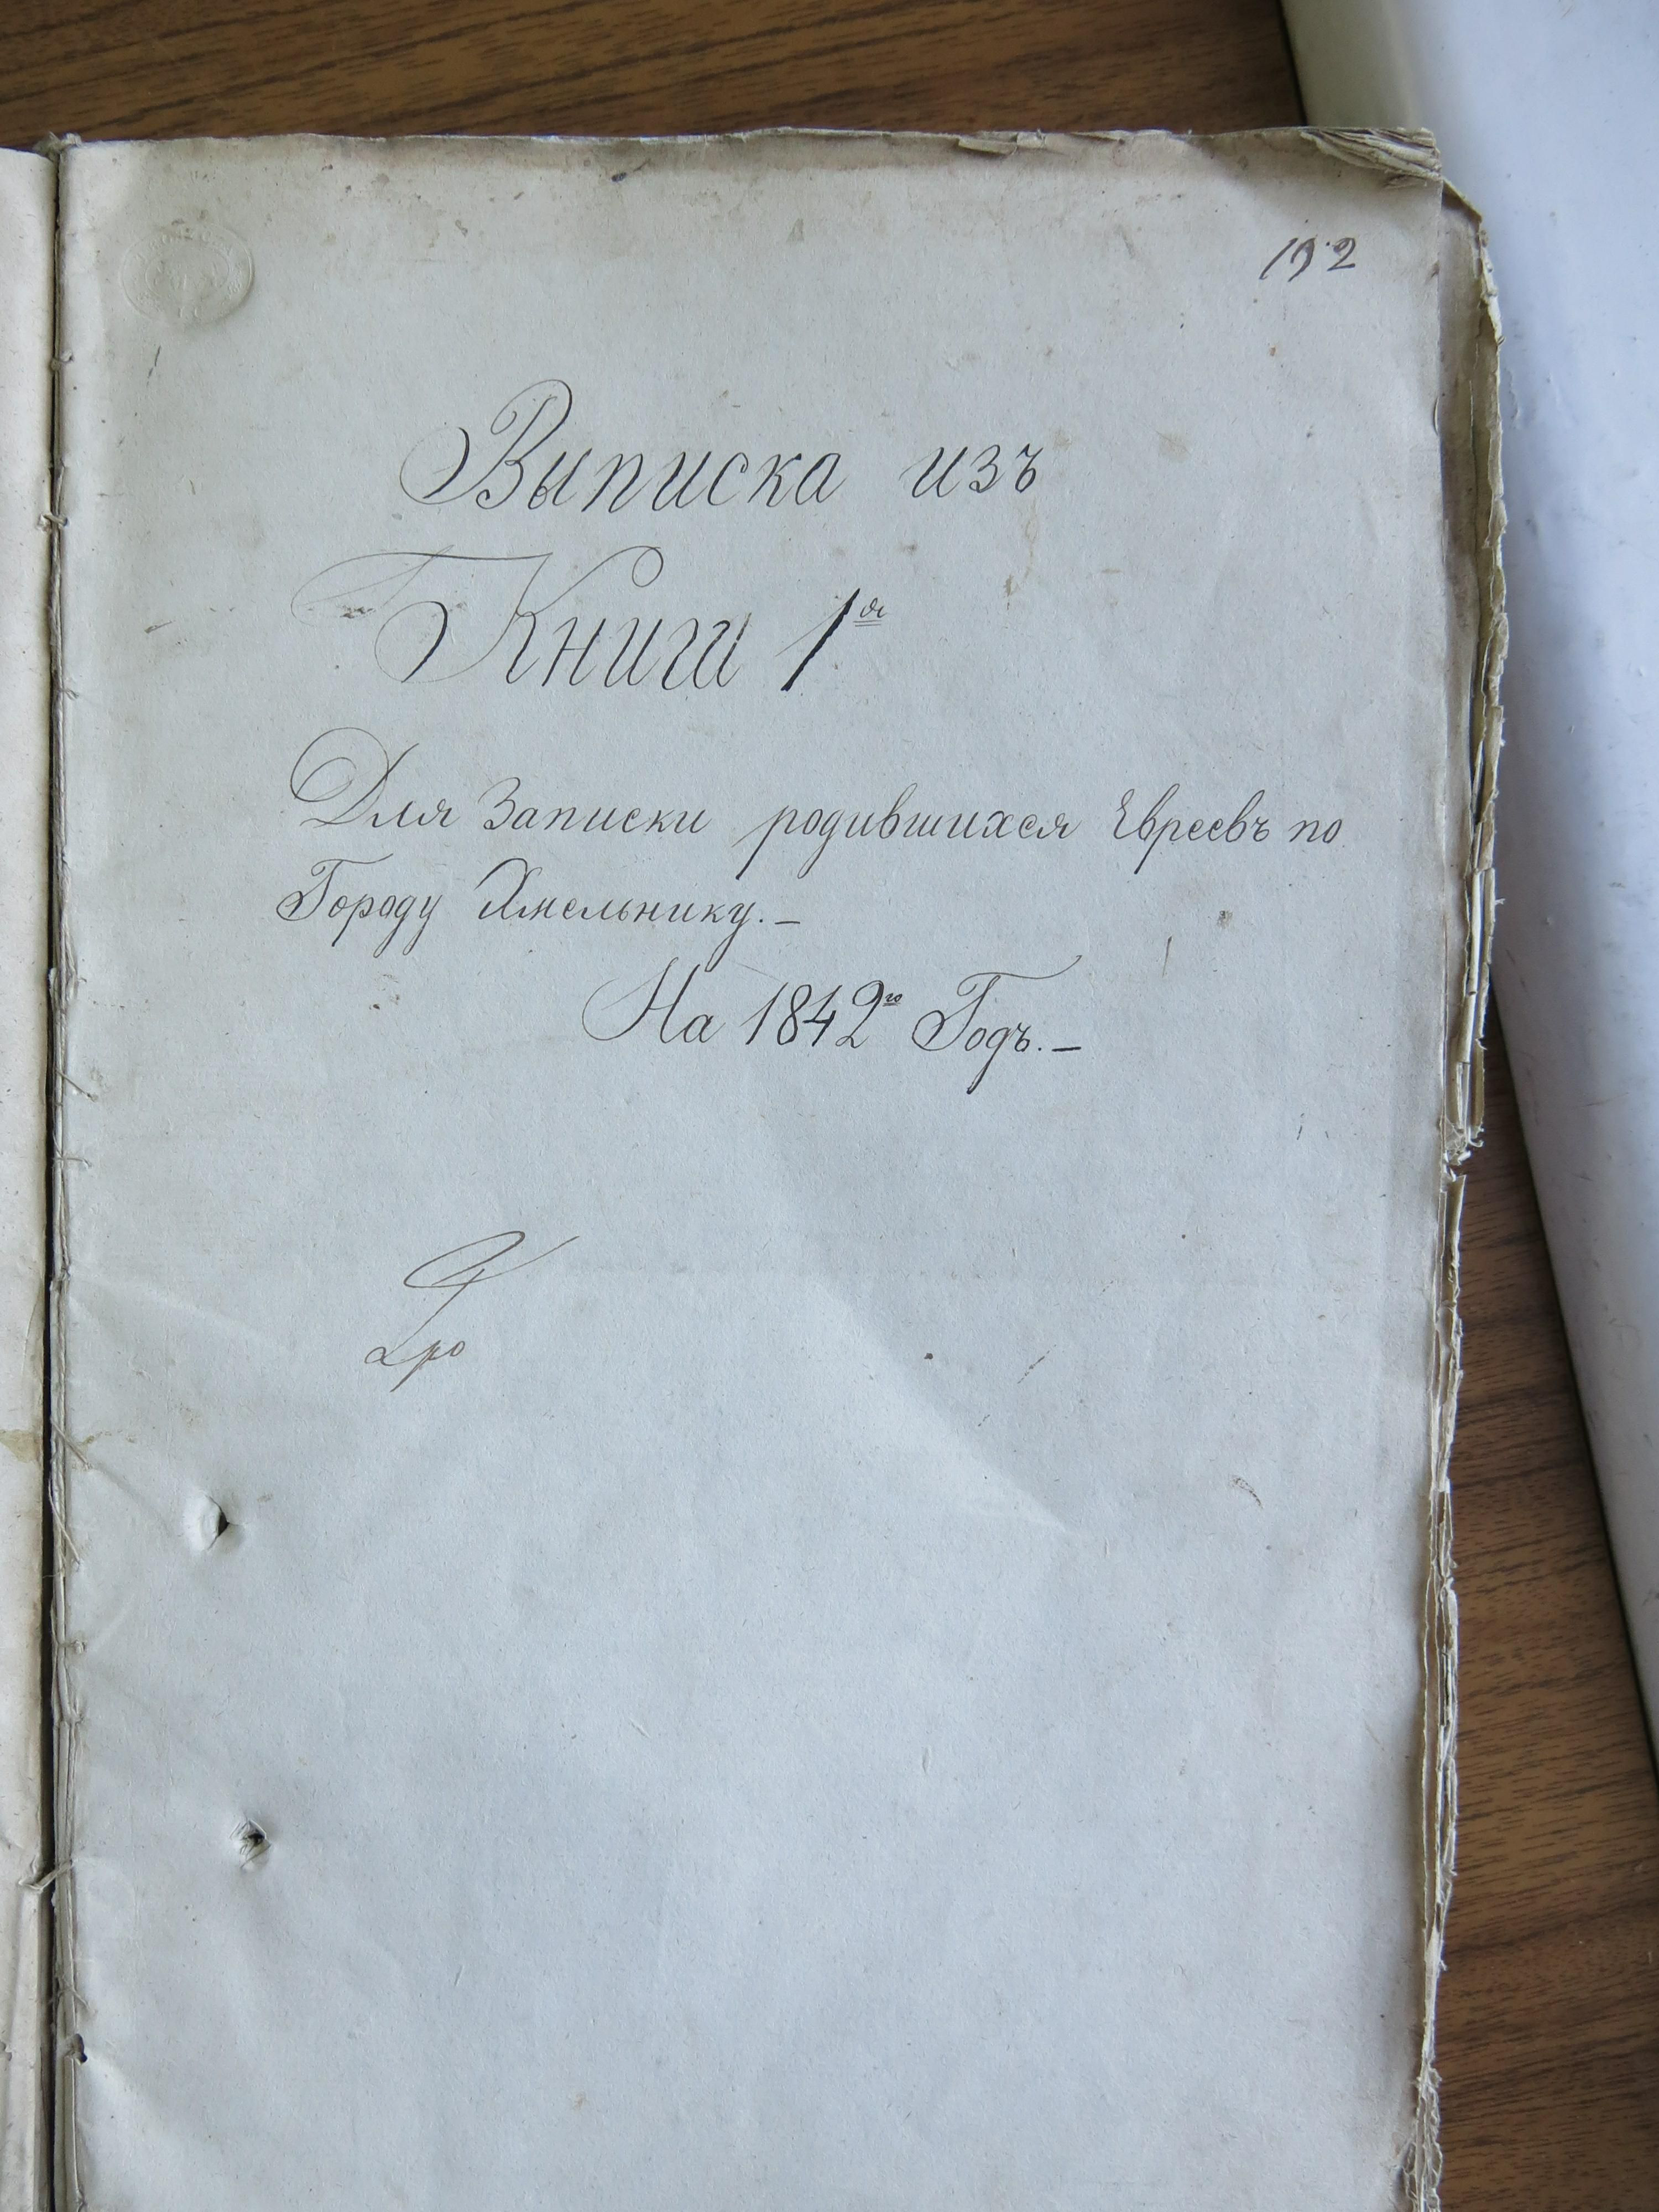 192
Выписка изъ
Книги 1ая
Для Записки родившихся Евреевъ по
Городу Хмельнику. –
На 1842го Годъ. –